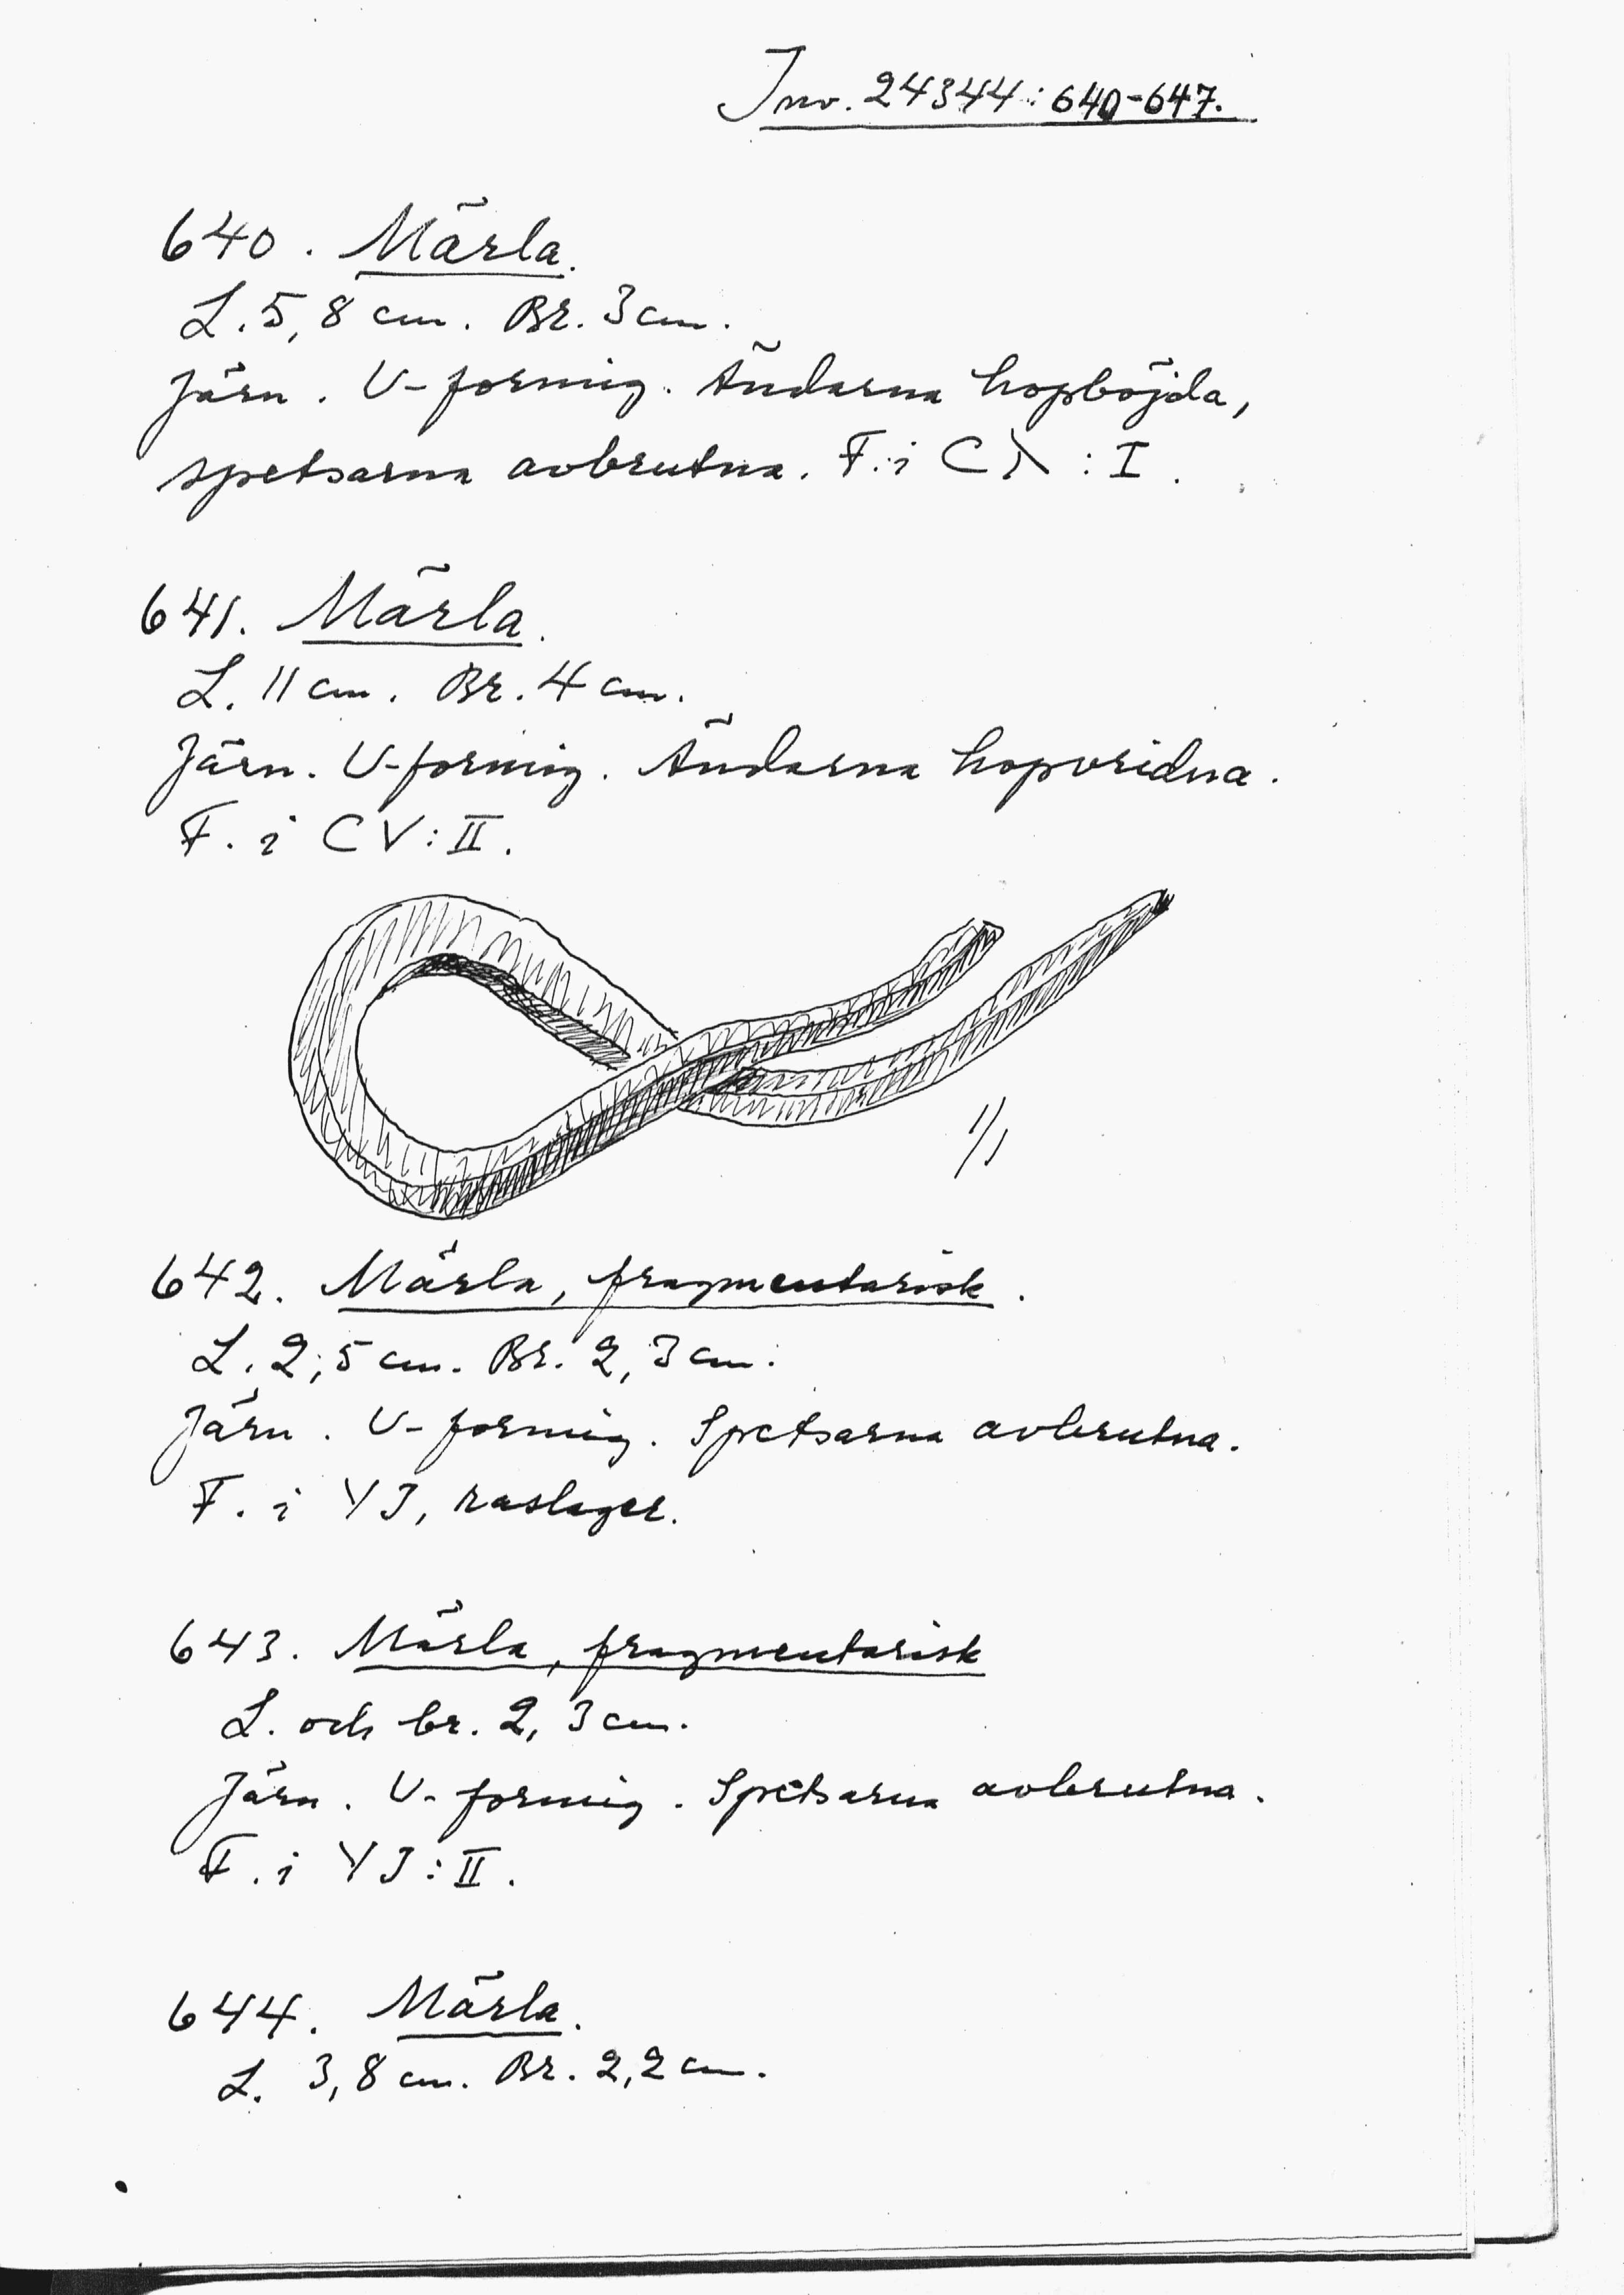 Inv. 24344: 640-647.
640. Märla.
L. 5,8 cm. Br. 3 cm.
Järn. U-formig. Ändarna hopböjda,
spetsarna avbrutna. F. i C : I.
641. Märla.
L. 11 cm. Br. 4 cm.
Järn. U-formig. Ändarna hopvridna.
F. i CV: II.
1/1
642. Märla, fragmentarisk.
L. 2,5 cm. Br. 2,3 cm.
Järn. U-formig. Spetsarna avbrutna.
F. i YJ, raslager.
643. Märla, fragmentarisk
L. och br. 2,3 cm.
Järn. U-formig. Spetsarna avbrutna.
F. i YJ: II.
644. Märla.
L. 3,8 cm. Br. 2,2 cm.